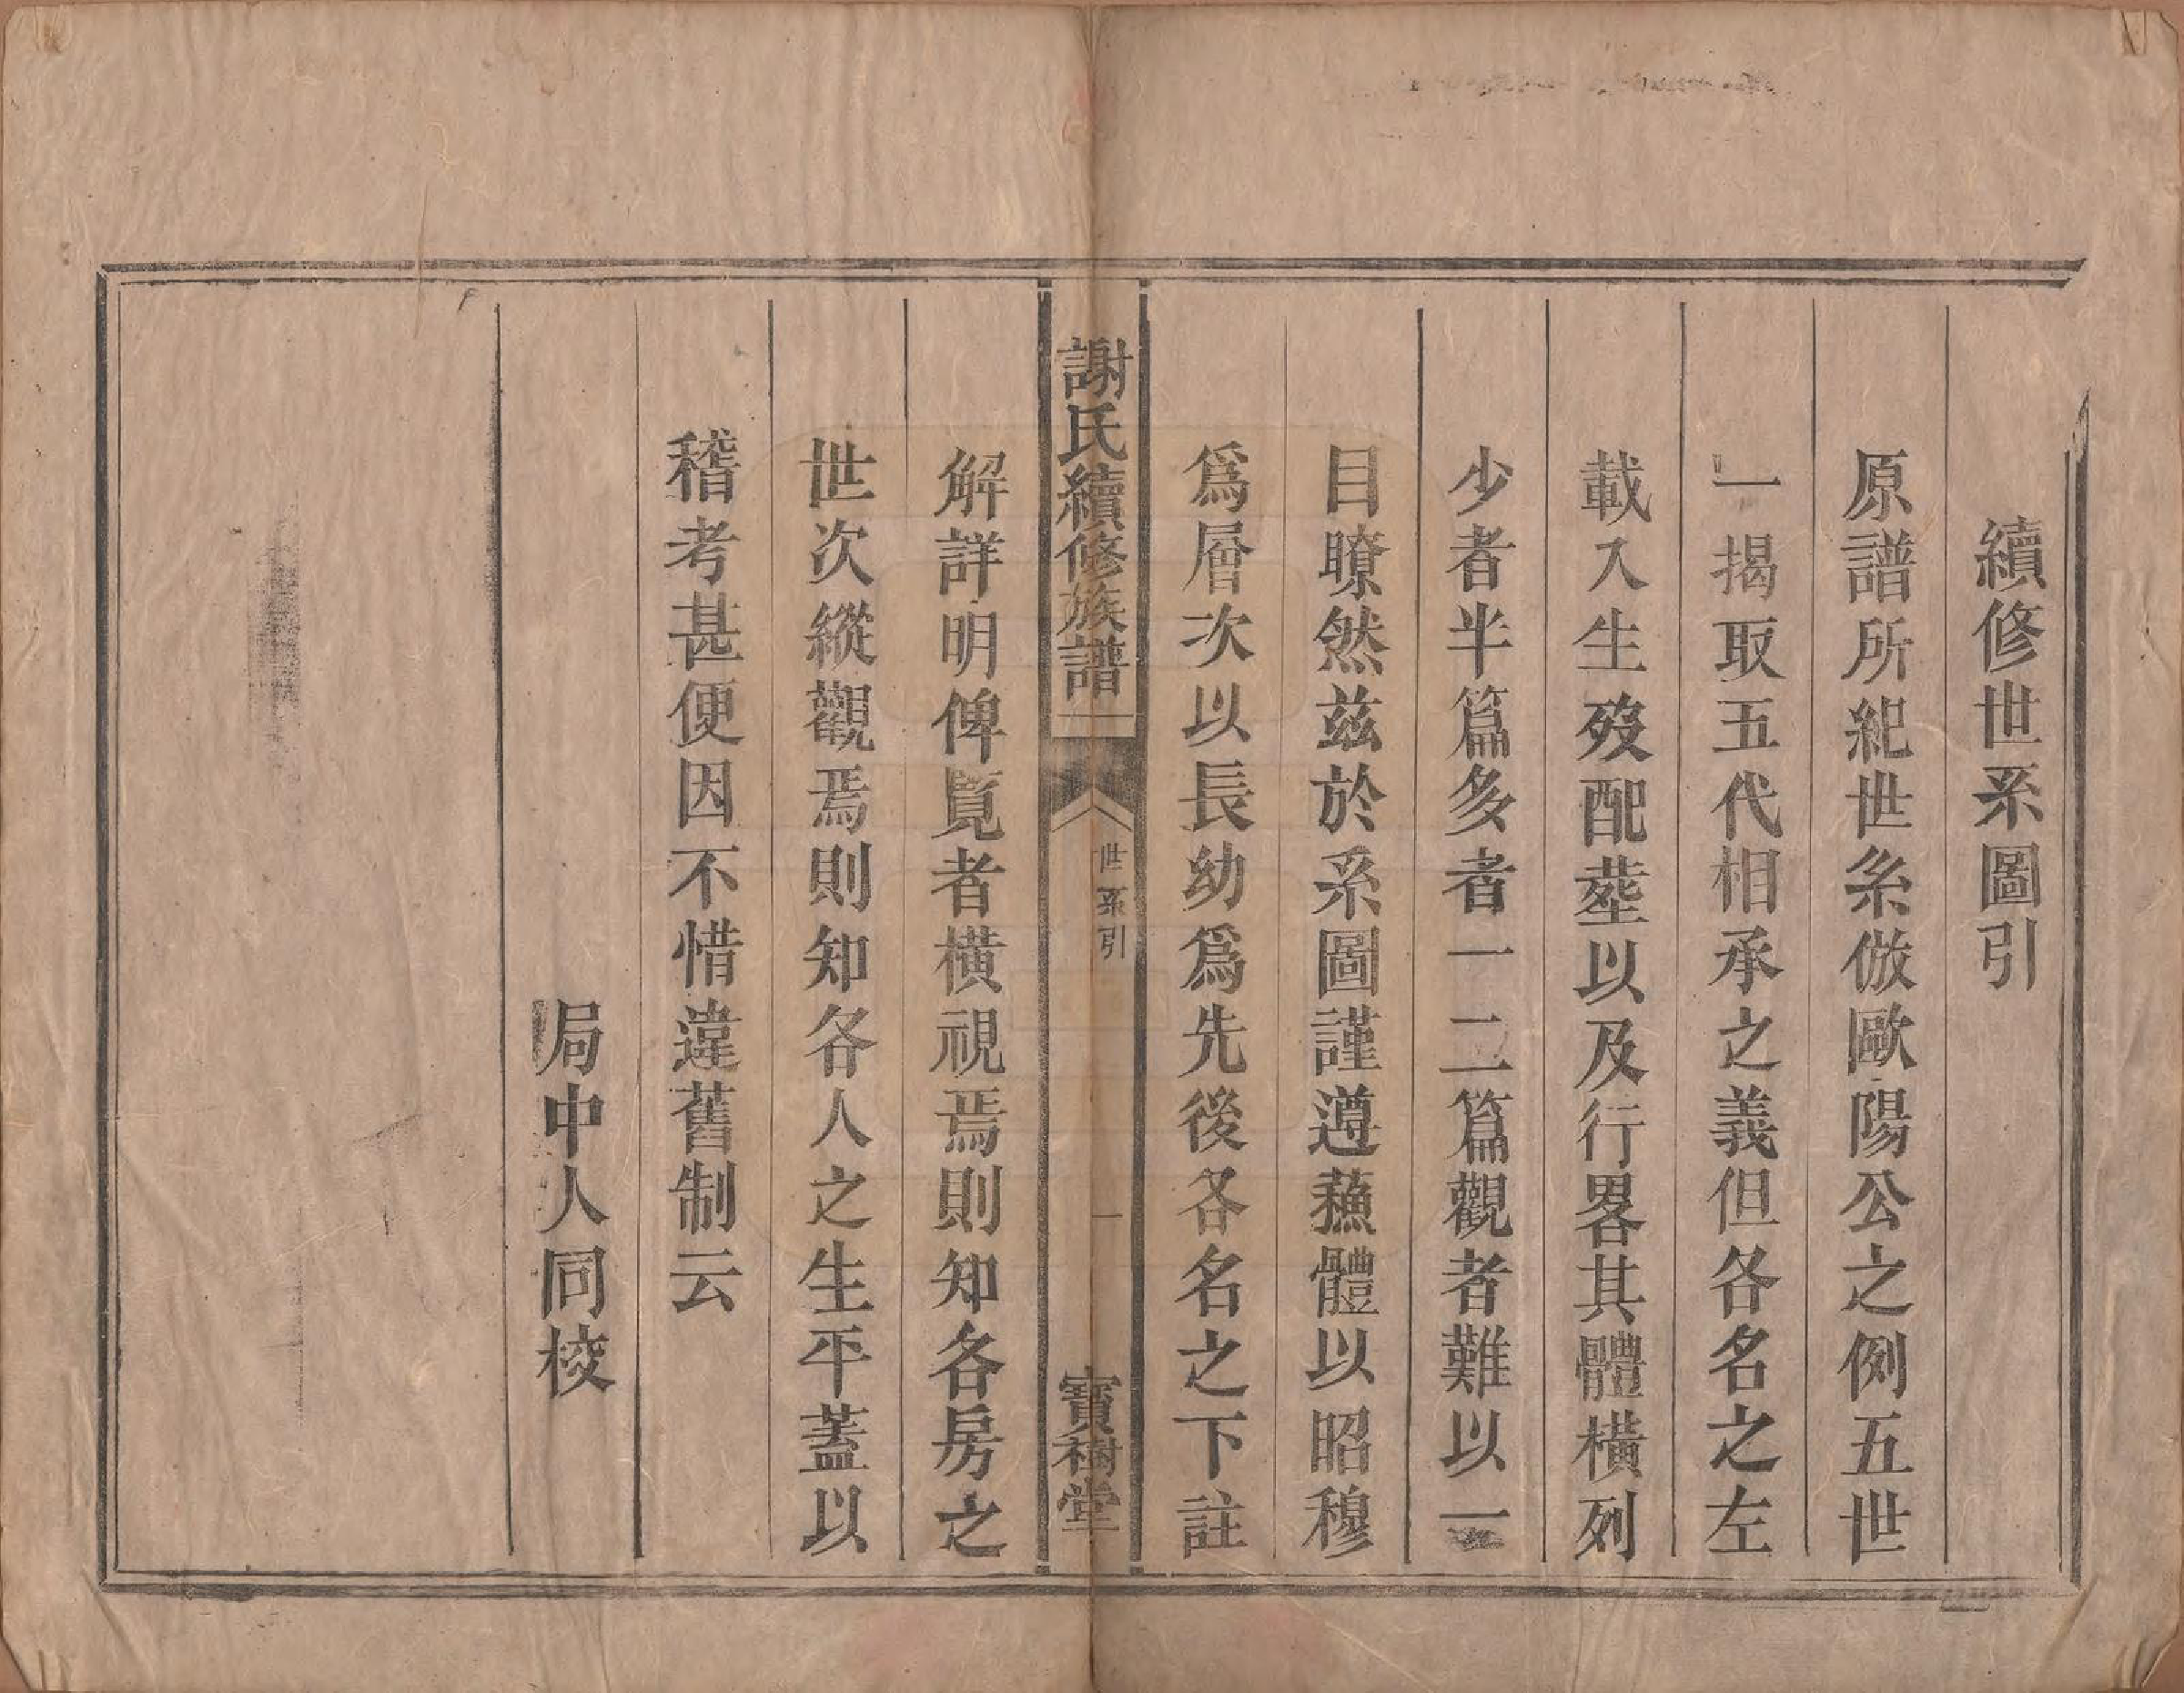 續修世系圖引
原譜所紀世系倣歐陽公之例五世
一揭取五代相承之義但各名之左
載入生歿配塟以及行畧其體橫列
少者半篇多者一二篇觀者難以一
目瞭然茲於系圖謹遵蘓體以昭穆
爲層次以長幼爲先後各名之下註
謝氏續修族譜
世系引
一
寶樹堂
解詳明俾覽者橫視焉則知各房之
世次縱觀焉則知各人之生平蓋以
稽考甚便因不惜違舊制云
局中人同校